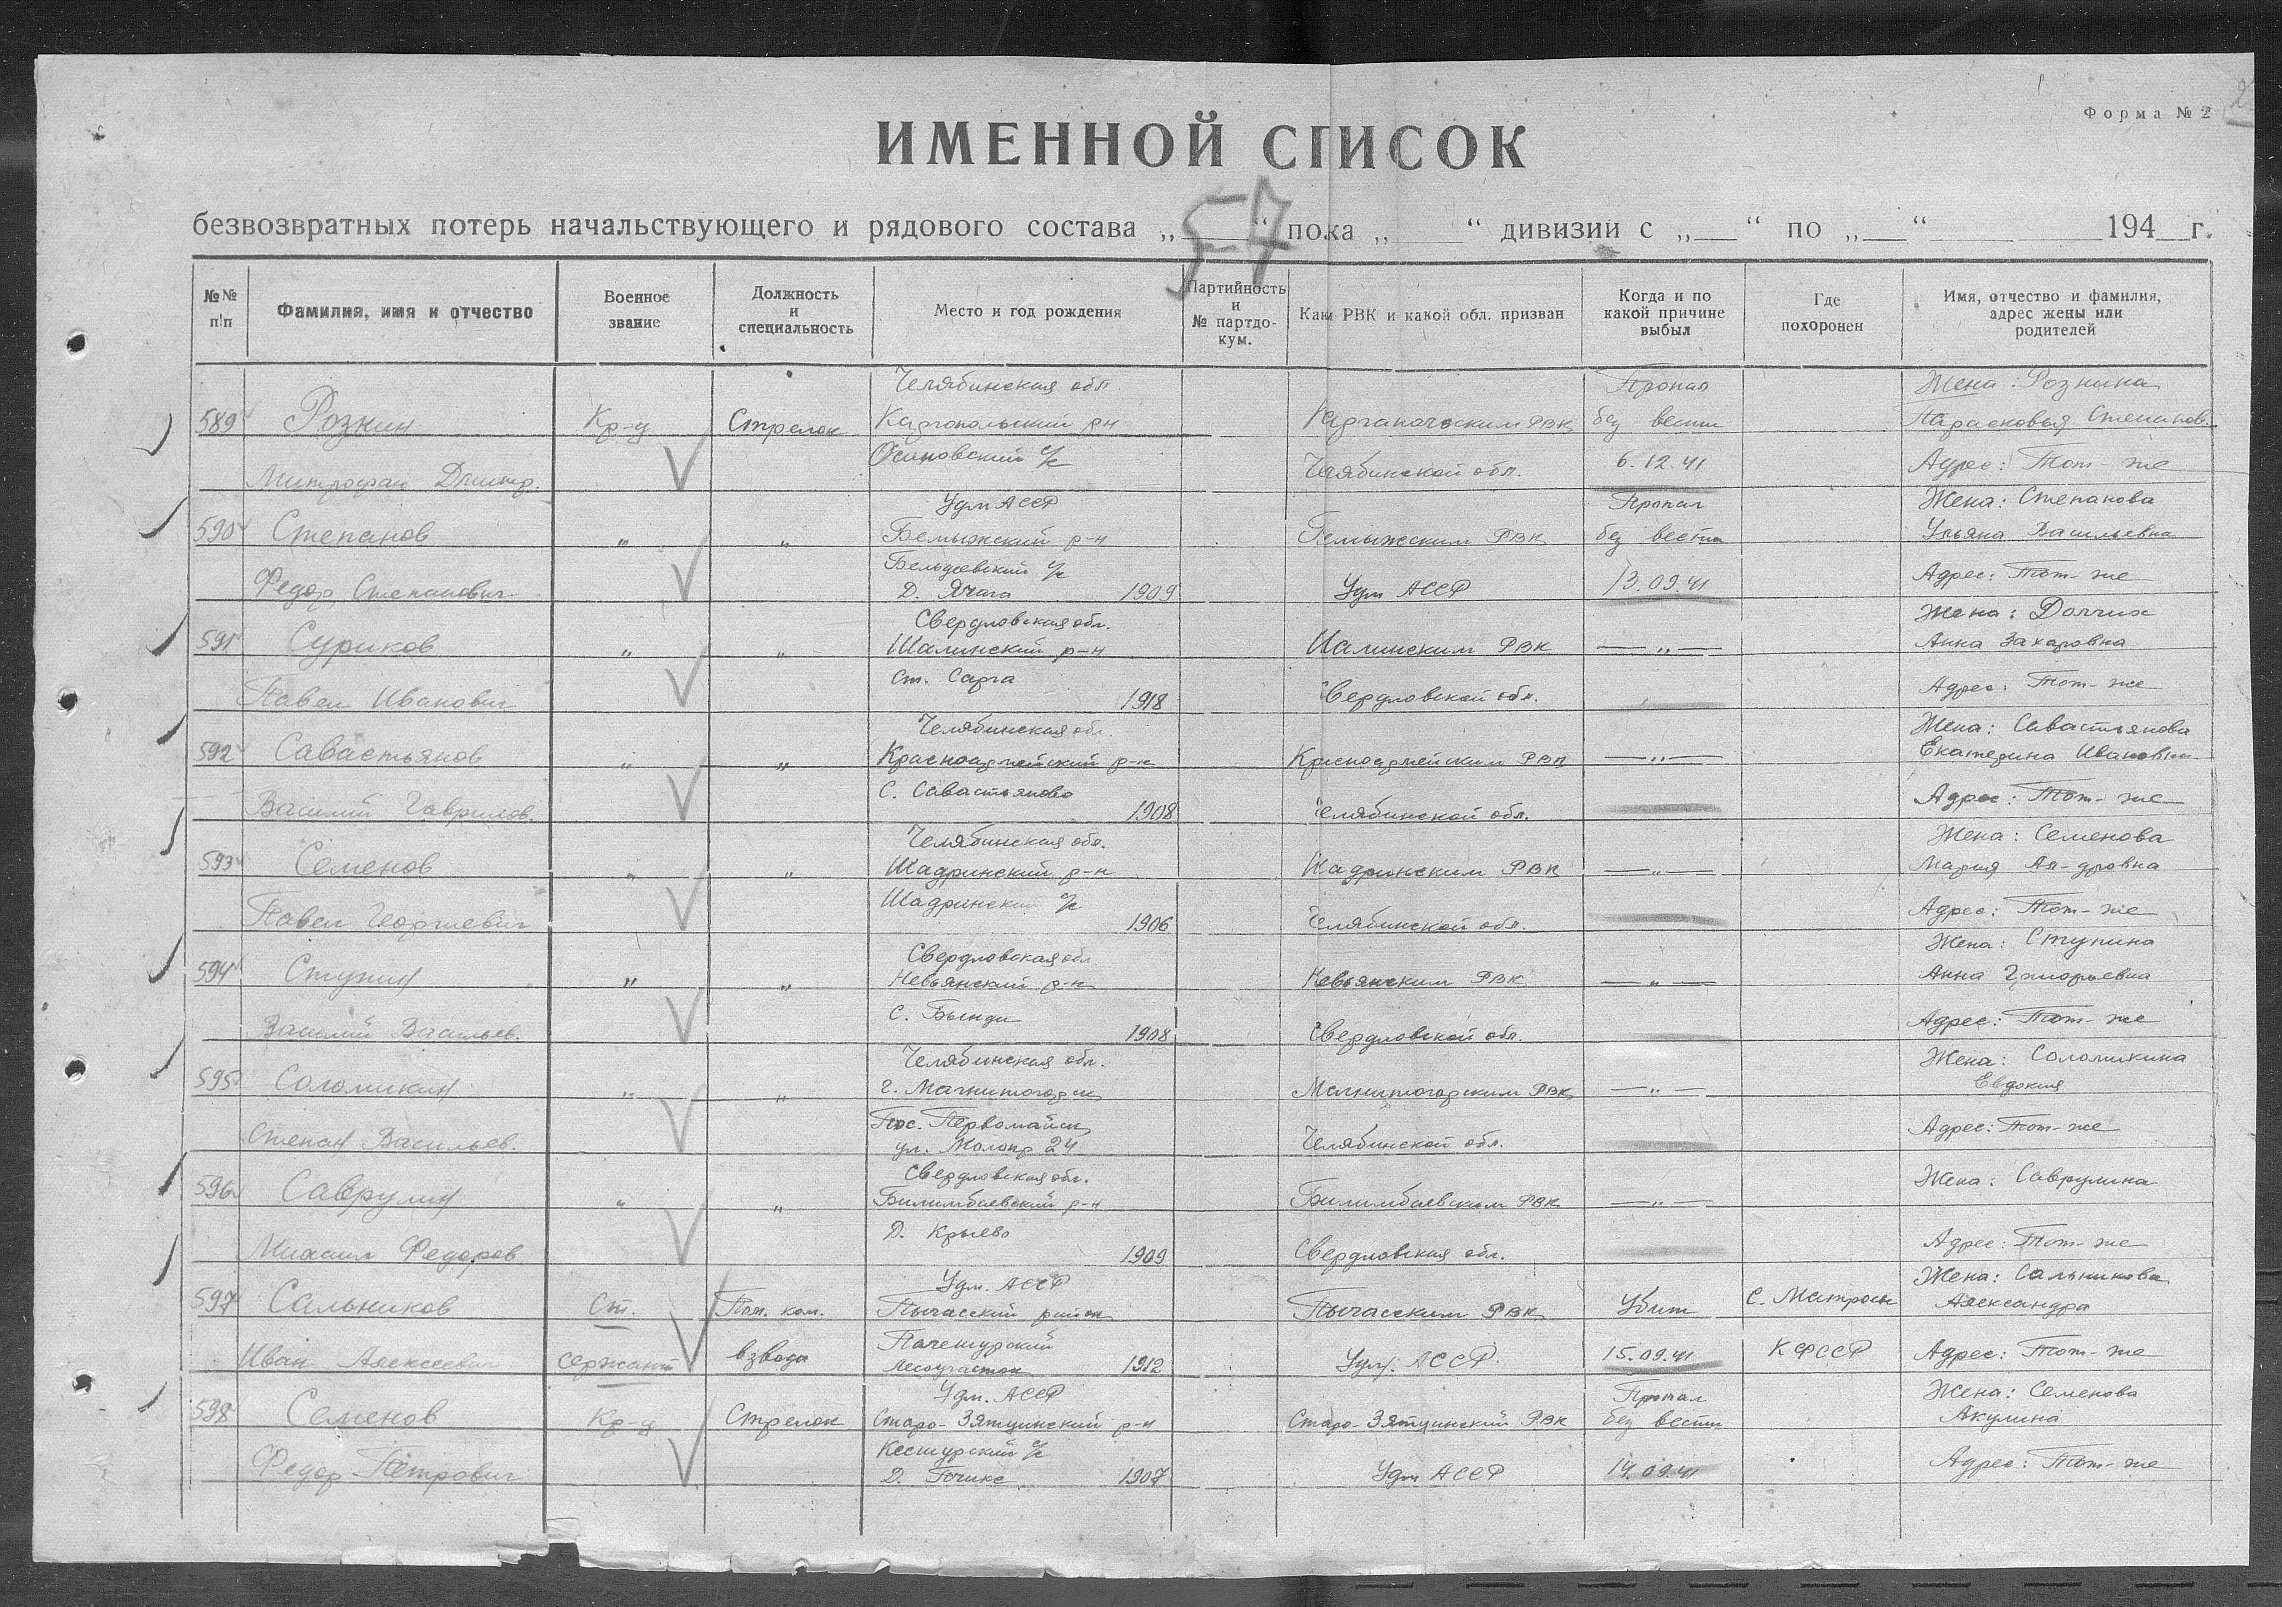 Форма № 2
ИМЕННОЙ СПИСОК
безвозвратных потерь начальствующего и рядового состава „ 57 “ полка „ “ дивизии с „ “ по „ “ 194 г.
№№ п/п | Фамилия, имя и отчество | Военное звание | Должность и специальность | Место и год рождения | Партийность и № партдокум. | Каким РВК и какой обл. призван | Когда и по какой причине выбыл | Где похоронен | Имя, отчество и фамилия, адрес жены или родителей
Челябинская обл. Пропал Жена: Рознина
589 Рознин Кр-ц Стрелок Каргопольский рн Каргапольским РВК без вести Парасковья Степанов.
Митрофан Дмитр. Осиновский с/с Челябинской обл. 6.12.41 Адрес: Тот же
Удм АССР Пропал Жена: Степанова
590 Степанов " " Бемыжский р-н Бемыжским РВК без вести Ульяна Васильевна
Федор Степанович Д. Ячага 1909 Удм АССР 13.09.41 Адрес: Тот-же
Свердловская обл. Жена: Долгих
591 Суриков " " Шалинский р-н Шалинским РВК — " — Анна Захаровна
Павел Иванович ст. Сарга 1918 Свердловской обл. Адрес: Тот-же
Челябинская обл. Жена: Савастьянова
592 Савастьянов " " Красноармейский р-н Красноармейским РВК — " — Екатерина Ивановн
Василий Гаврилов. С. Савастьяново 1908 Челябинской обл. Адрес: Тот-же
Челябинская обл. Жена: Семенова
593 Семенов " " Шадринский р-н Шадринским РВК — " — Мария Ал-дровна
Павел Георгиевич Шадринский с/с 1906 Челябинской обл. Адрес: Тот-же
Свердловская обл Жена: Ступина
594 Ступин " " Невьянский р-н Невьянским РВК — " — Анна Григорьевна
Василий Васильев. С. Быньги 1908 Свердловской обл. Адрес: Тот-же
Челябинская обл. Жена: Соломикина
595 Соломикин " " г. Магнитогорск Магнитогорским РВК — " — Евдокия
Степан Васильев. Пос. Первомайск Челябинской обл. Адрес: Тот-же
ул. 24
Свердловская обл. Жена: Саврулина
596 Саврулин " " Билимбаевский р-н Билимбаевским РВК — " —
Михаил Федоров Д. Крылево 1909 Свердловская обл. Адрес: Тот-же
Удм. АССР Жена: Сальникова
597 Сальников Ст. Пом. ком. Пычасский район Пычасским РВК Убит С. Матросы Александра
Иван Алексеевич сержант взвода лесоучасток 1912 Удм. АССР 15.09.41 КФССР Адрес: Тот-же
Удм. АССР Пропал Жена: Семенова
598 Семенов Кр-ц Стрелок Старо-Зятцинский р-н Старо-Зятцинский РВК без вести Акулина
Федор Петрович Д. 1907 Удм АССР 14.09.41 Адрес: Тот-же